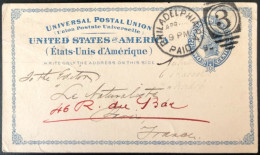 UNIVERSAL POSTAL UNION
Union Postale Universelle
UNITED STATES AMERICA
(États-Unis d'Amérique)
WRITE ONLY THE ADDRESS ON THIS SIDE
PHILADELPHIA
9 PM
PAID
3
To the Editor
La Naturaliste
46 R. du Bac
France